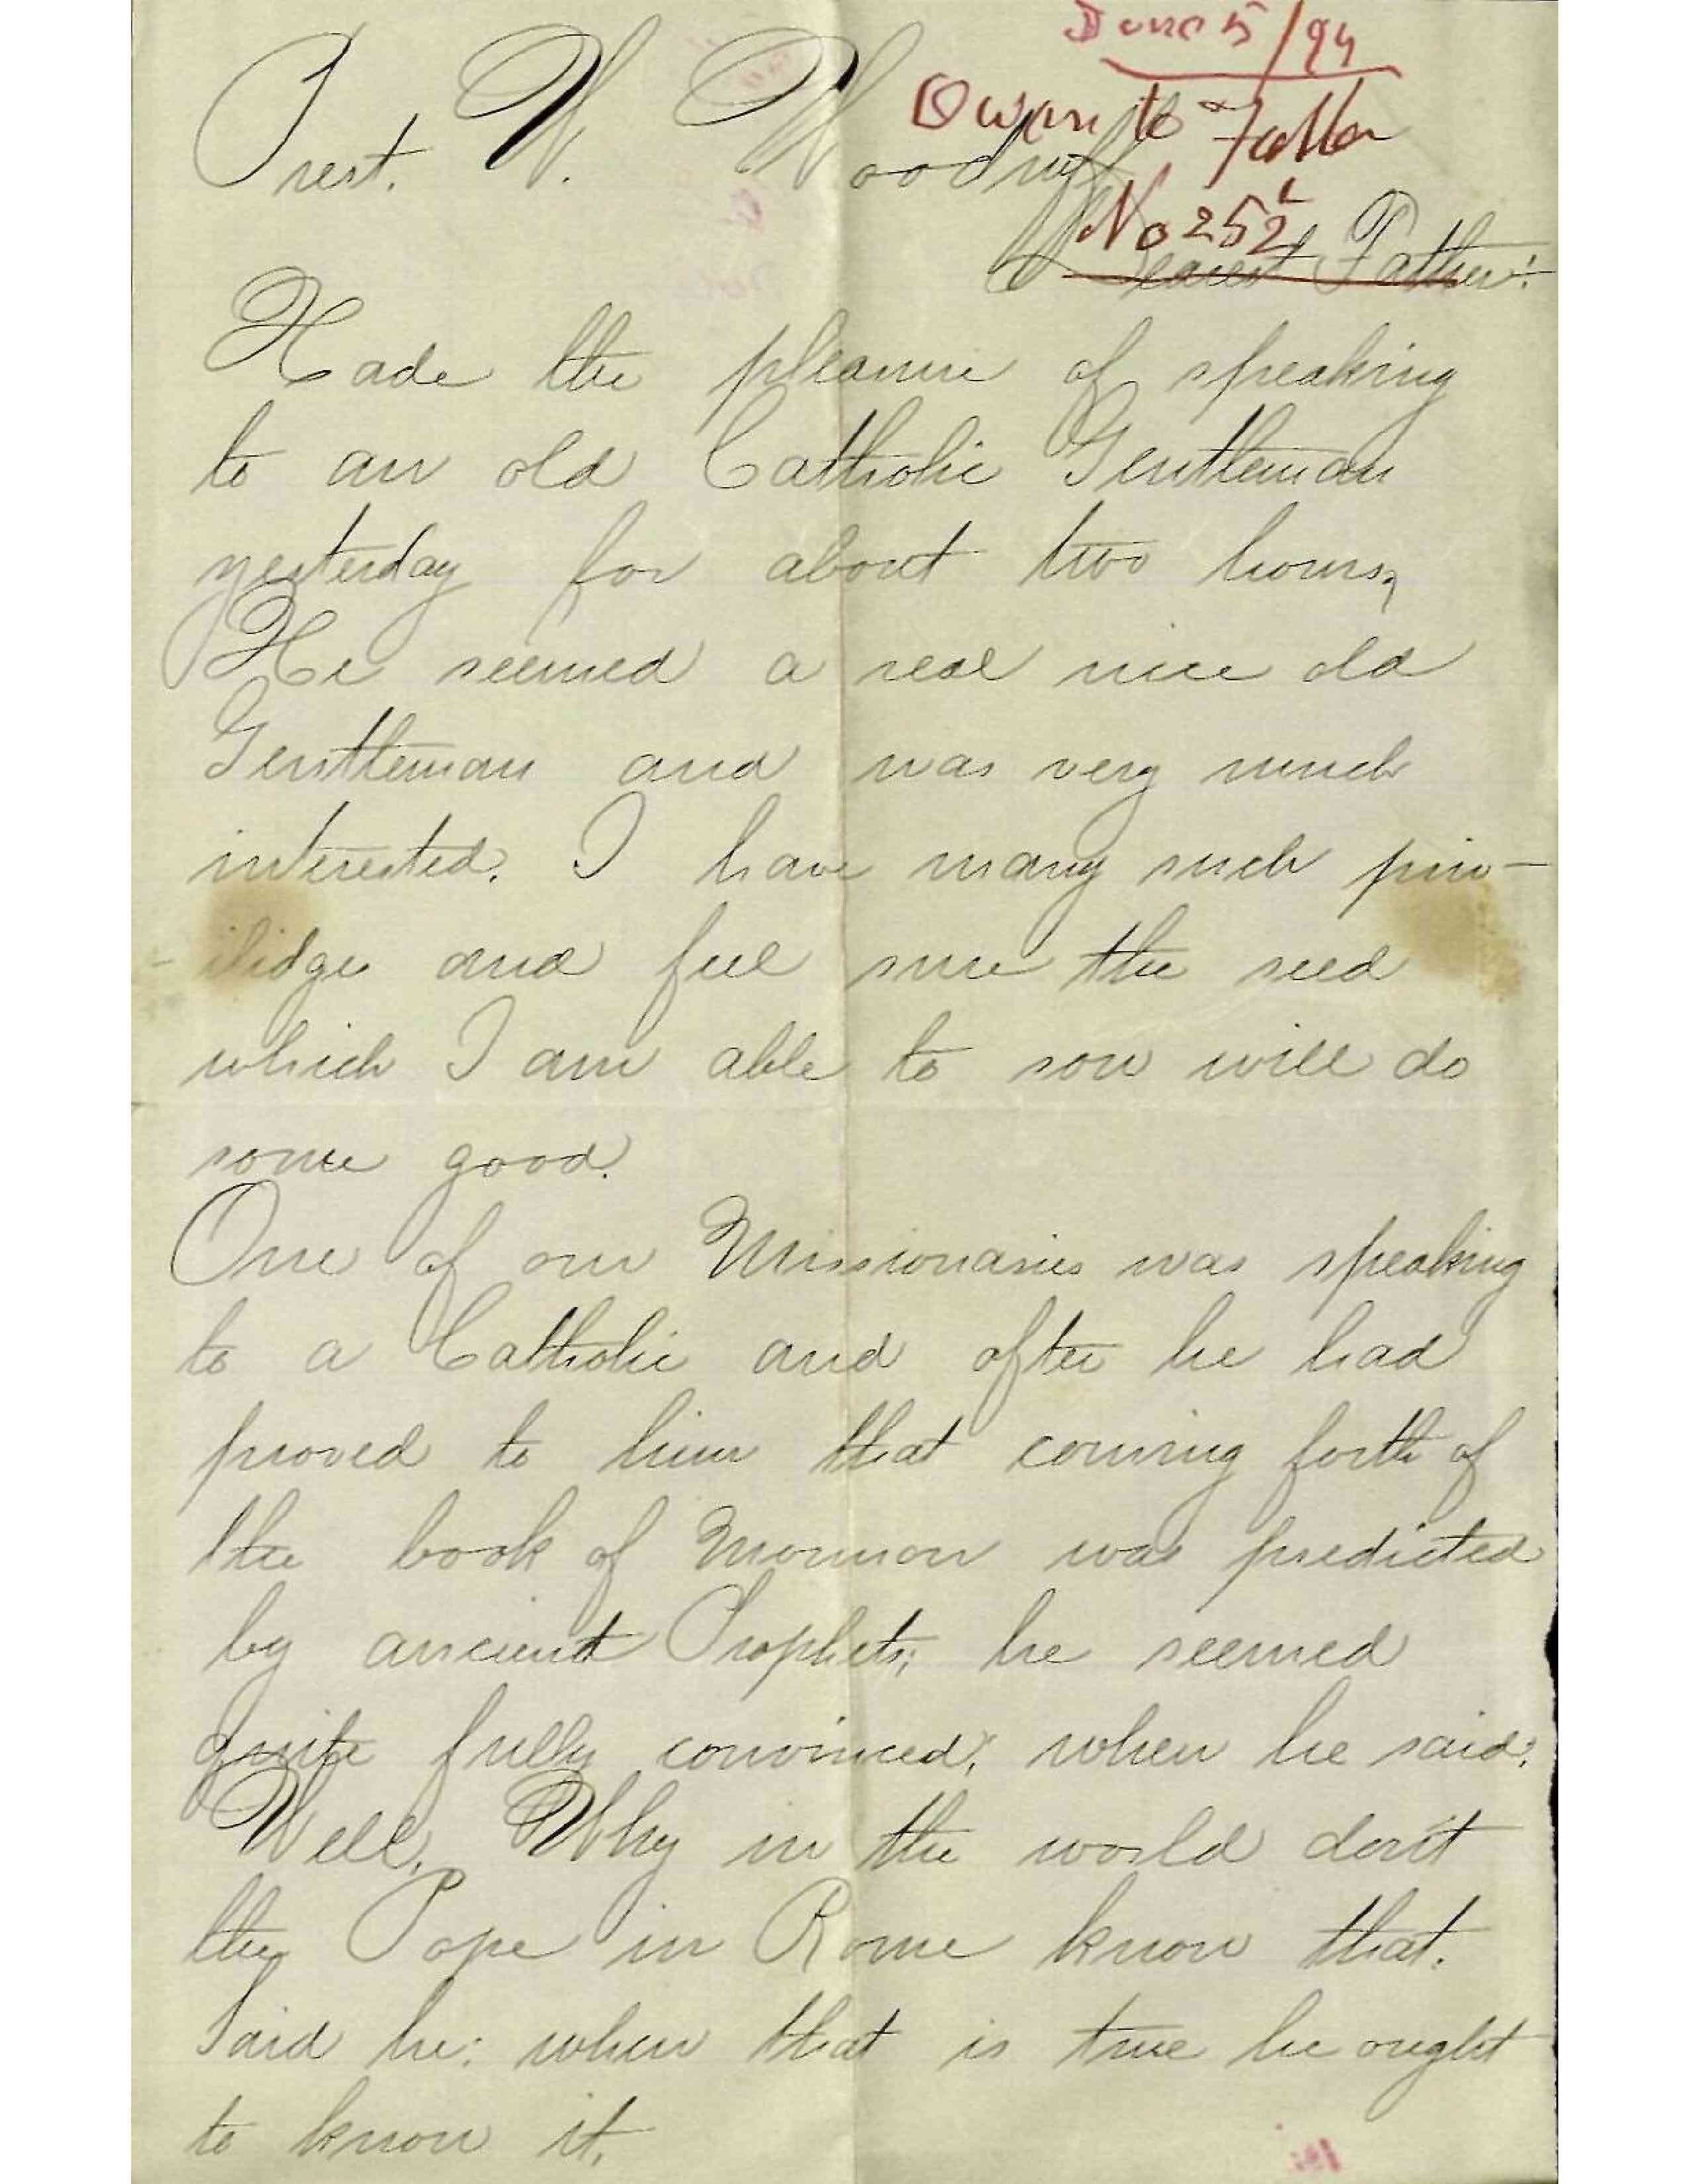 June 5/94
Owen to Father
No 252
Prest. W. Woodruff
Dearest Father:
Hade the pleasure of speaking
to an old Catholic Gentleman
yesterday for about two hours,
He seemed a real nice old
Gentleman and was very much
interested. I have many such priv-
-ilidges and feel sure the seed
which I am able to sow will do
some good.
One of our Missionaries was speaking
to a Catholic and after he had
proved to him that coming forth of
the book of Mormon was predicted
by ancient Prophets; he seemed
quite fully convinced; when he said;
Well, Why in the world don't
the Pope in Rome know that.
Said he: when that is true he ought
to know it.